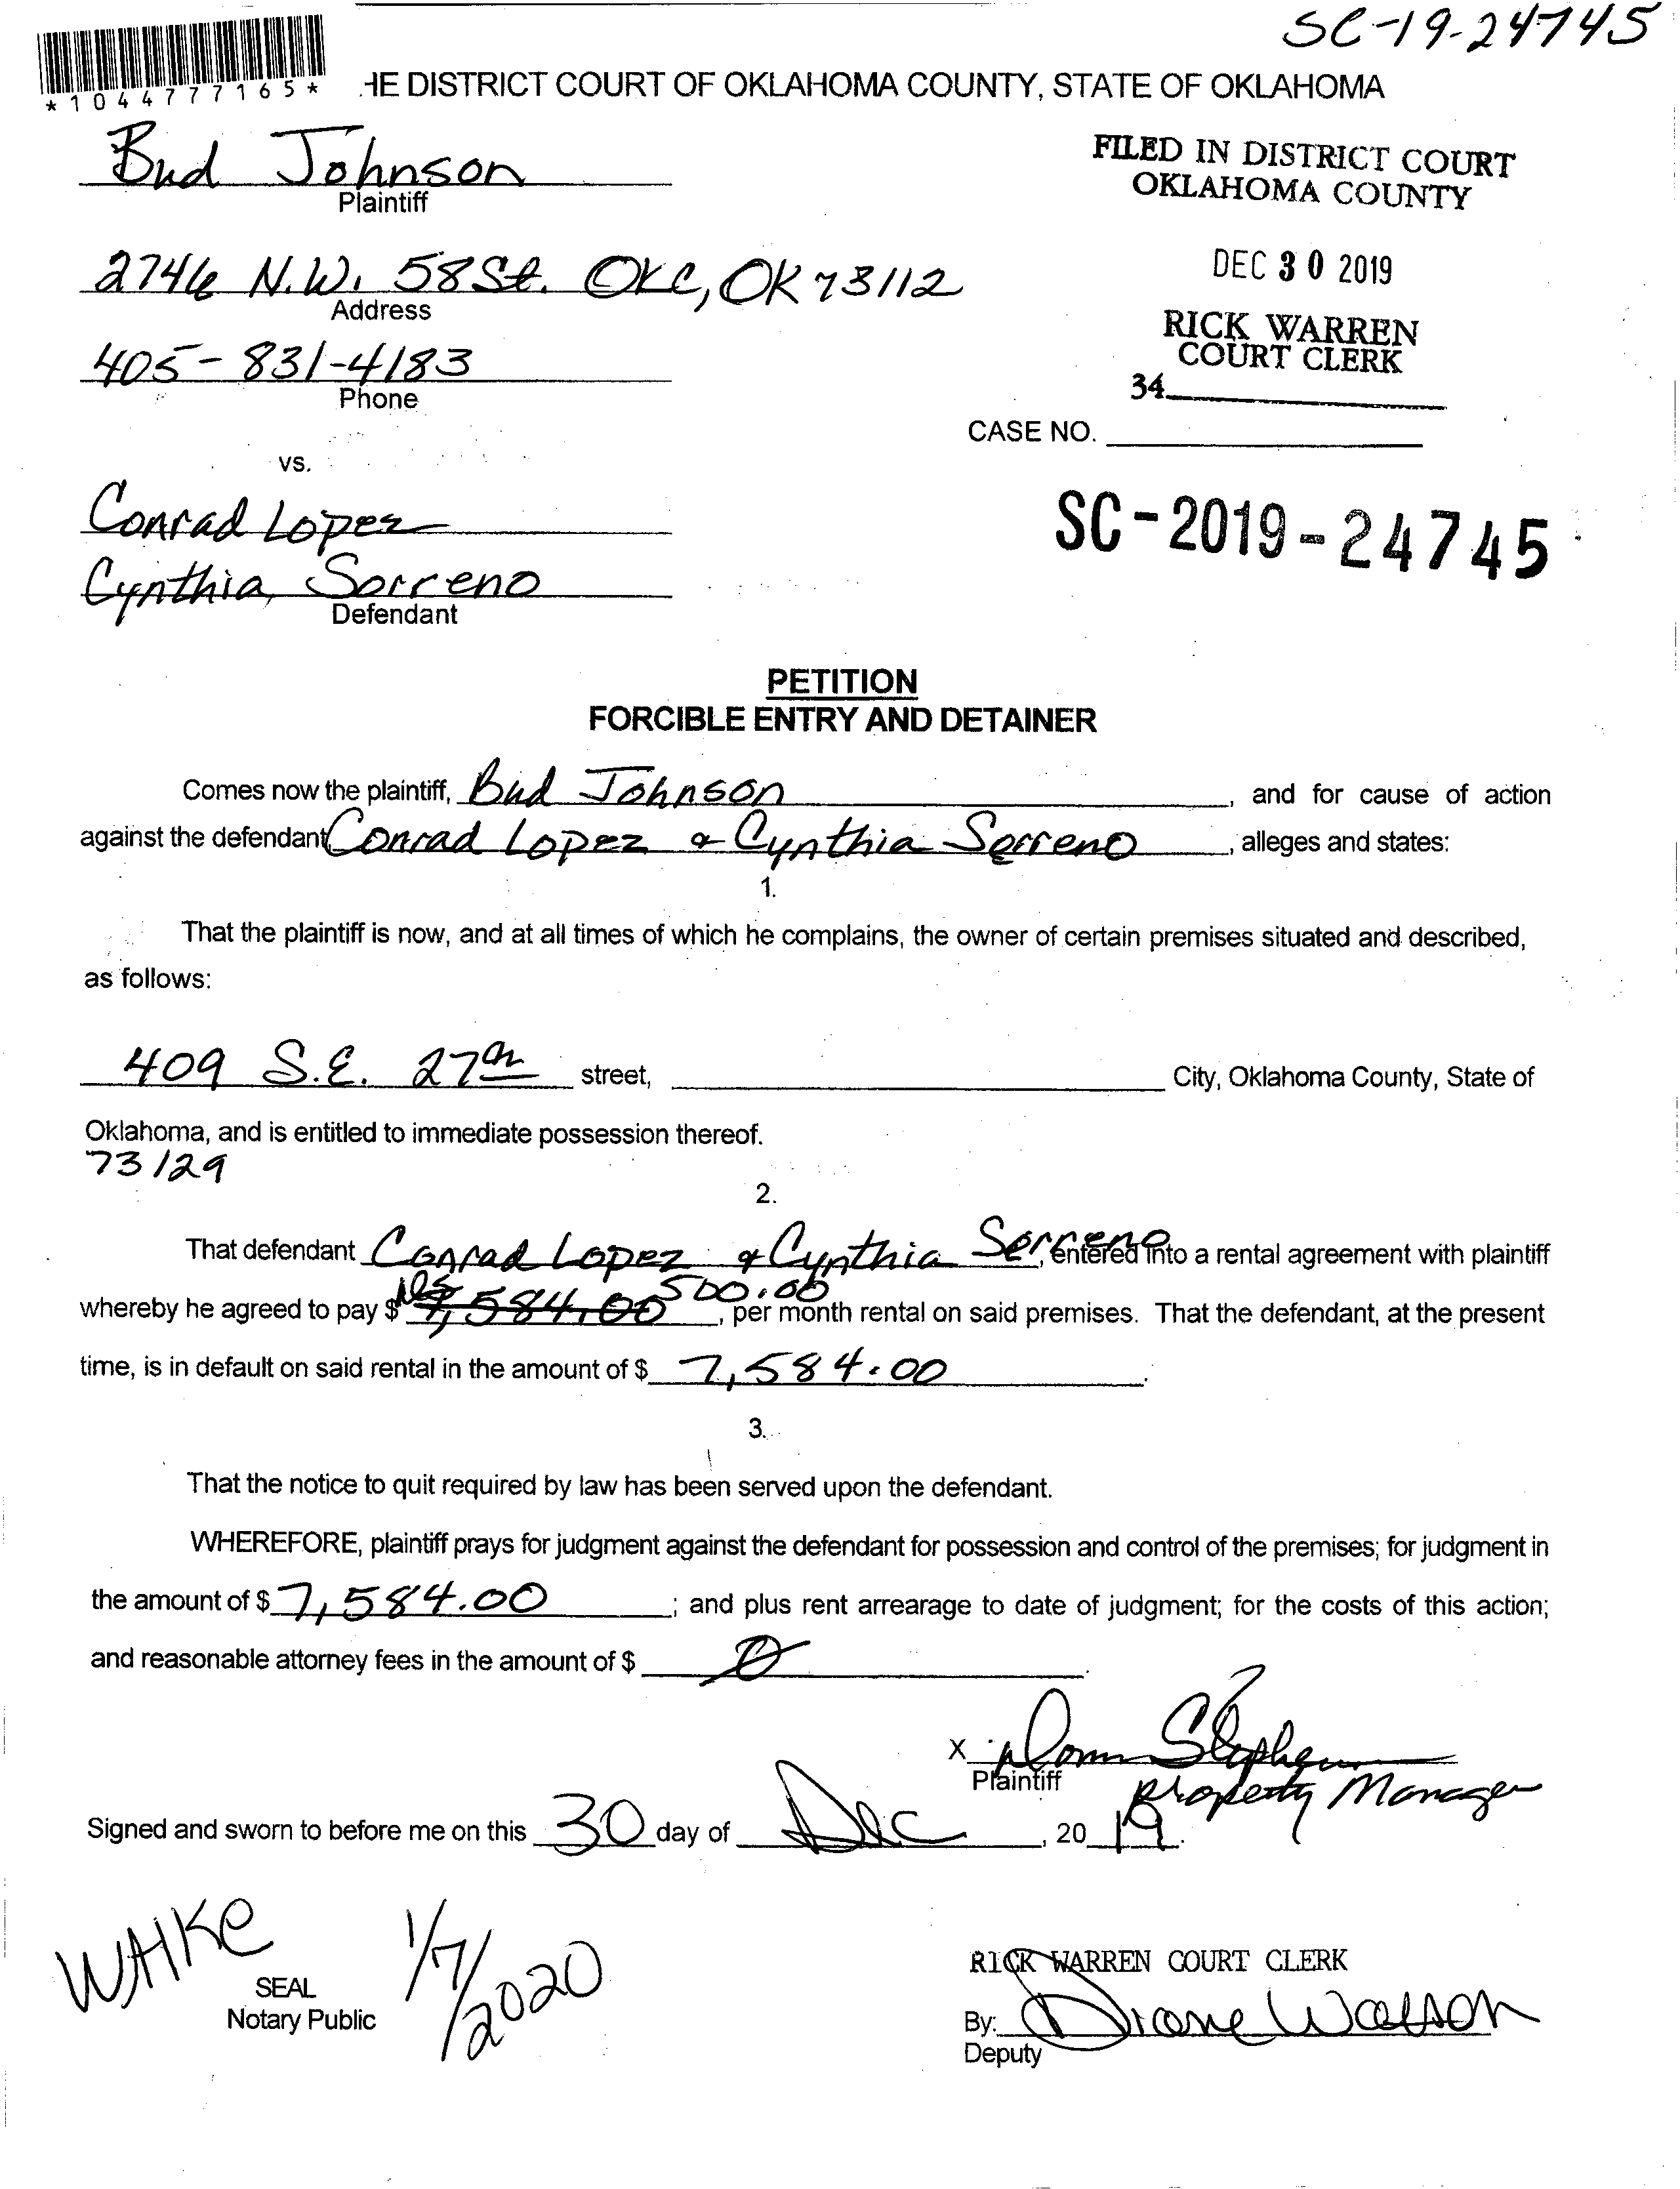 SC-19-24745
*1044777165*
HE DISTRICT COURT OF OKLAHOMA COUNTY, STATE OF OKLAHOMA
Bud Johnson
Plaintiff
FILED IN DISTRICT COURT
OKLAHOMA COUNTY
2746 N.W. 58 St. OKC, OK 73112
Address
DEC 30 2019
RICK WARREN
COURT CLERK
405-831-4183
Phone
34
CASE NO.
vs.
Conrad Lopez
SC-2019-24745
Cynthia Sorreno
Defendant
PETITION
FORCIBLE ENTRY AND DETAINER
Comes now the plaintiff, Bud Johnson, and for cause of action
against the defendant Conrad Lopez & Cynthia Serreno, alleges and states:
1.
That the plaintiff is now, and at all times of which he complains, the owner of certain premises situated and described,
as follows:
409 S.E. 27th street, City, Oklahoma County, State of
Oklahoma, and is entitled to immediate possession thereof.
73129
2.
That defendant Conrad Lopez & Cynthia Serreno, entered into a rental agreement with plaintiff
whereby he agreed to pay $ 7,584.00 500.00, per month rental on said premises. That the defendant, at the present
time, is in default on said rental in the amount of $ 7,584.00.
3.
That the notice to quit required by law has been served upon the defendant.
WHEREFORE, plaintiff prays for judgment against the defendant for possession and control of the premises; for judgment in
the amount of $ 7,584.00; and plus rent arrearage to date of judgment; for the costs of this action;
and reasonable attorney fees in the amount of $ 0.
X Stephens
Plaintiff Property Manager
Signed and sworn to before me on this 30 day of Dec, 2019.
WAIKE 1/7/2020
SEAL
Notary Public
RICK WARREN COURT CLERK
By: Diane Watson
Deputy